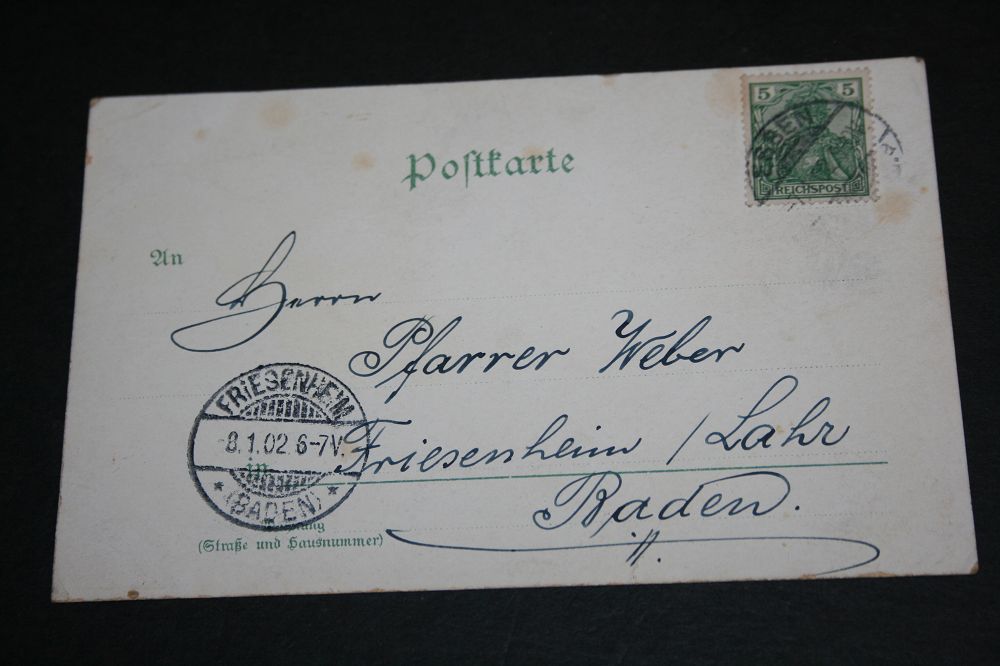 5 5
REICHSPOST
Postkarte
An
Herrn
Pfarrer Weber
FRIESENHEIM
8.1.02. 6-7V.
in
* (BADEN) *
Friesenheim / Lahr
Baden.
(Straße und Hausnummer)